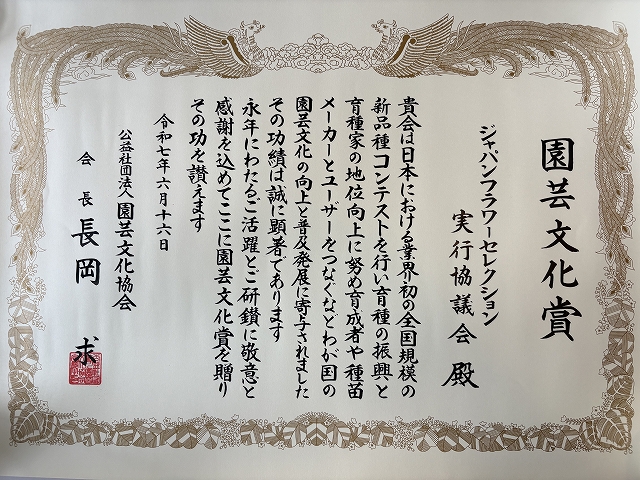 園芸文化賞
ジャパンフラワーセレクション
実行協議会 殿
貴会は日本における業界初の全国規模の
新品種コンテストを行い育種の振興と
育種家の地位向上に努め育成者や種苗
メーカーとユーザーをつなぐなどわが国の
園芸文化の向上と普及発展に寄与されました
その功績は誠に顕著であります
永年にわたるご活躍とご研鑽に敬意と
感謝を込めてここに園芸文化賞を贈り
その功を讃えます
令和七年六月十六日
公益社団法人園芸文化協会
会長 長岡 求